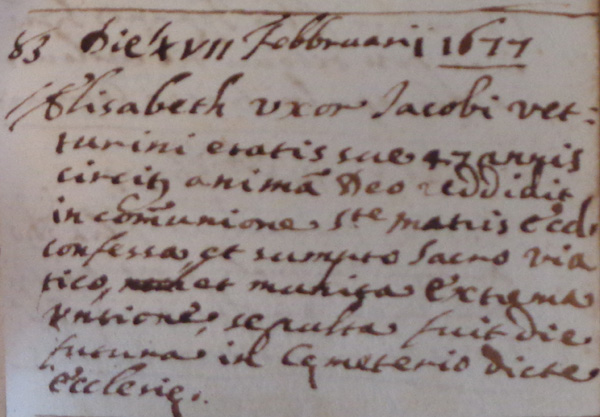 83 Die XVII Febbruarii 1677
Elisabeth uxor Jacobi vet-
turini etatis sue 47 annis
circitę animā Deo reddidit
in com̄unione Ste matris eccl.
confessa, et sumpto sacro via
tico, et munita extrema
untione, sepulta fuit die
futura in Cymeterio dicte
Ecclesię.